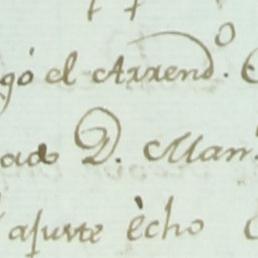 gó el Arrend.º
ado D. Man
ajuste ècho